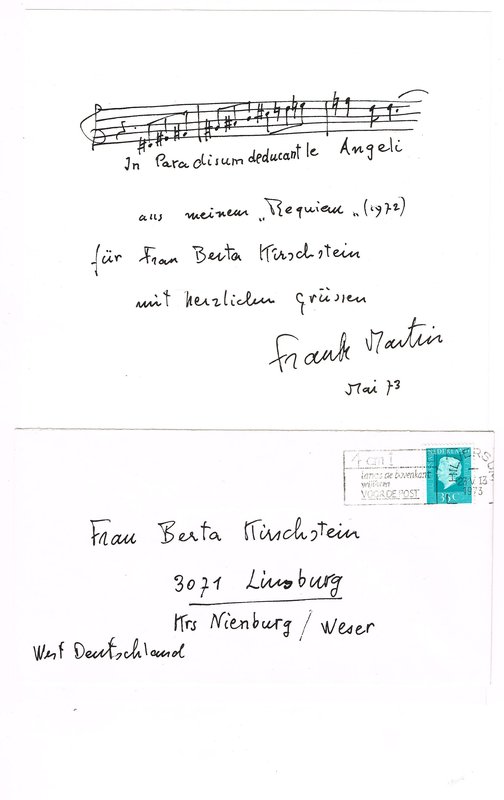 In Paradisum deducant te Angeli
aus meinem „Requiem„ (1972)
für Frau Berta Kirschstein
mit herzlichen Grüssen
Frank Martin
Mai 73
4 cm
langs de bovenkant
vrijlaten
VOOR DE POST
NEDERLAND
35 C
HILVERSUM
1973
Frau Berta Kirschstein
3071 Linsburg
Krs Nienburg / Weser
West Deutschland